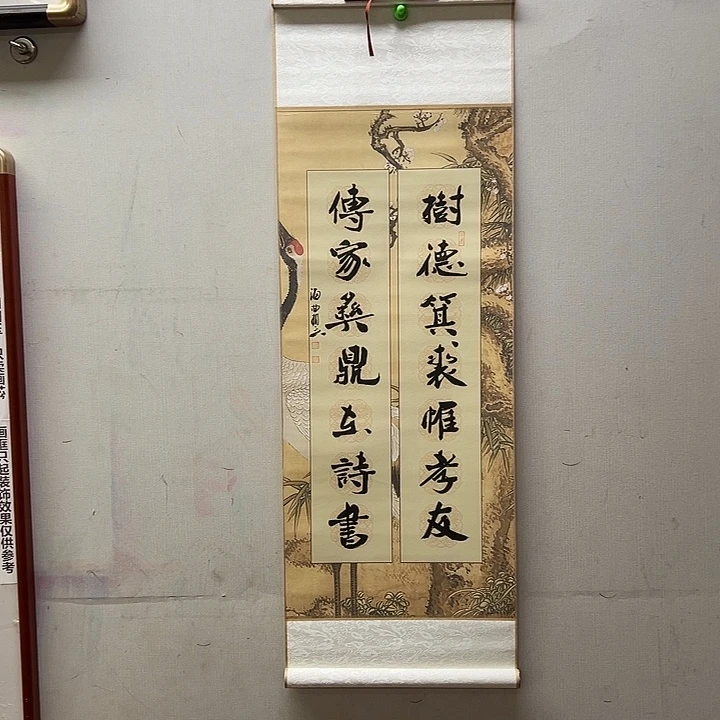 樹德箕裘惟孝友
傳家彝鼎在詩書
画框只起装饰效果仅供参考